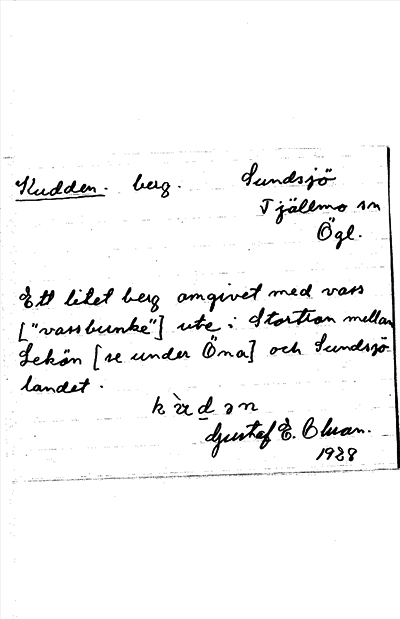 Kudden. berg. Sundsjö
Tjällmo sn
Ögl.
Ett litet berg omgivet med vass
["vassbunke"] ute i Stortron mellan
Lekön [se under Öna] och Sundsjö-
landet.
kùdən
Gustaf E. Olsson.
1928